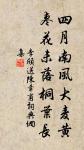 四月南風大麥黃
棗花未落桐葉長
李頎送陳章甫詩典網
集